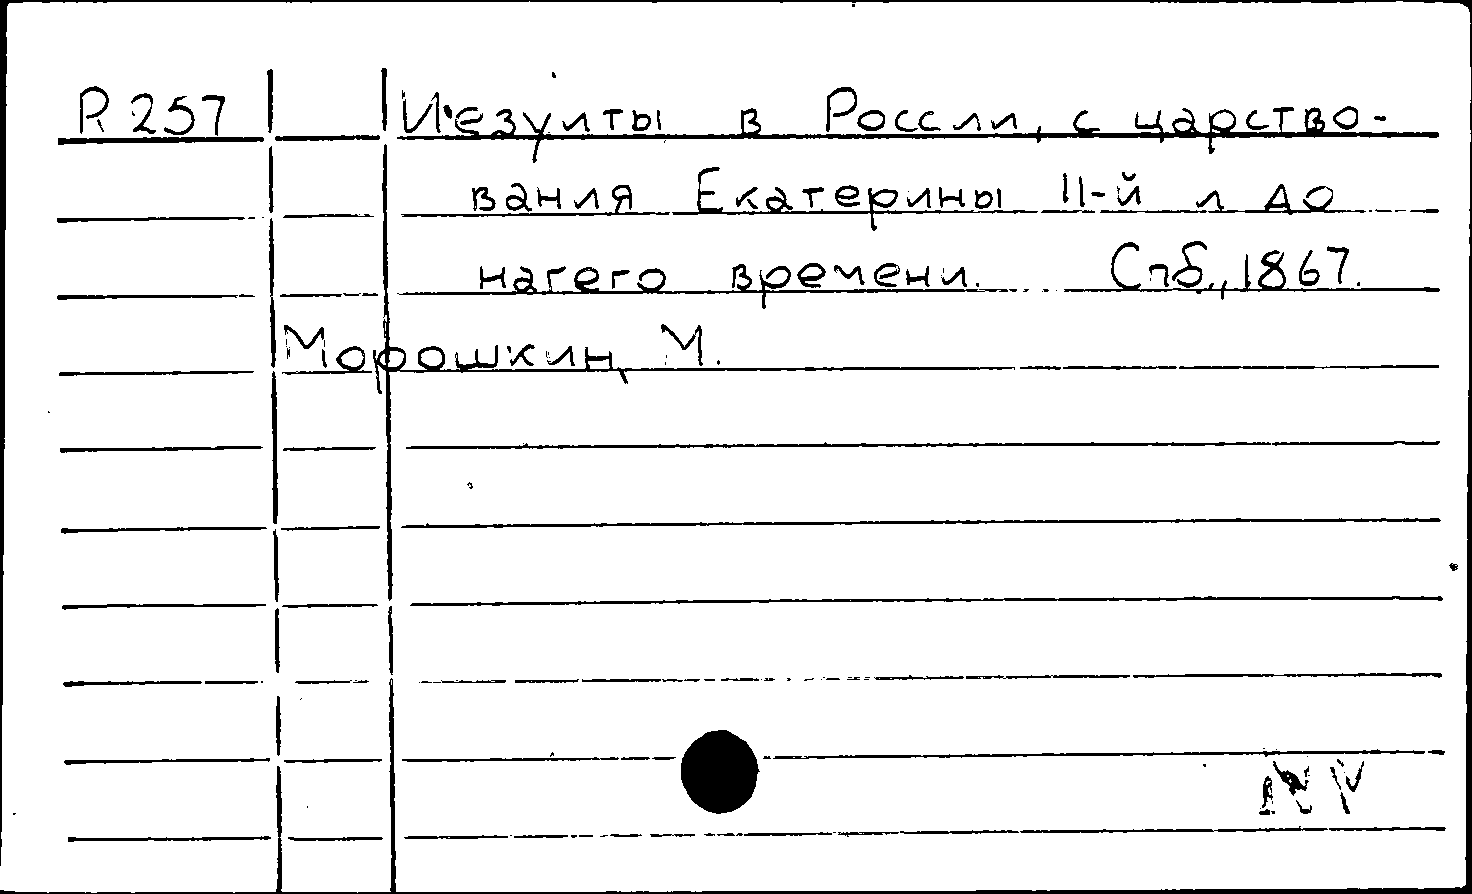 R 257 Иезуиты в России, с царство-
вания Екатерины II-й и до
нагего времени. Спб., 1867.
Морошкин, М.